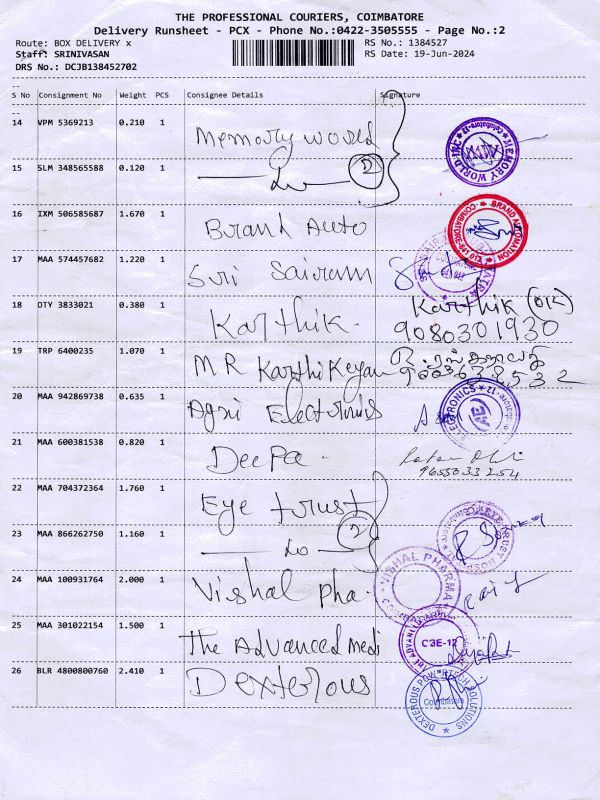 THE PROFESSIONAL COURIERS, COIMBATORE
Delivery Runsheet - PCX - Phone No.:0422-3505555 - Page No.:2
Route: BOX DELIVERY x
RS No.: 1384527
Staff: SRINIVASAN
RS Date: 19-Jun-2024
DRS No.: DCJB138452702
S No Consignment No Weight PCS Consignee Details Signature
14 VPM 5369213 0.210 1 Memory world
MEMORY WORLD INC Coimbatore-12
15 SLM 348565588 0.120 1 2
16 IXM 506585687 1.670 1 Brand Auto
BRAND AUTOMATION COIMBATORE-641 012
17 MAA 574457682 1.220 1 Sri Sairam
18 OTY 3833021 0.380 1 Karthik. Karthik
9080301930
19 TRP 6400235 1.070 1 M R Karthikeyan
20 MAA 942869738 0.635 1 Agni Electronics
ELECTRONICS
21 MAA 600381538 0.820 1 Deepa.
9655033254
22 MAA 704372364 1.760 1 Eye trust
23 MAA 866262750 1.160 1 2
24 MAA 100931764 2.000 1 Vishal pha.
VISHAL PHARMA
25 MAA 301022154 1.500 1 The Advanced Medi
CBE-12
26 BLR 4800800760 2.410 1 Dexterous
DEXTEROUS POWERTECH SOLUTIONS Coimbatore